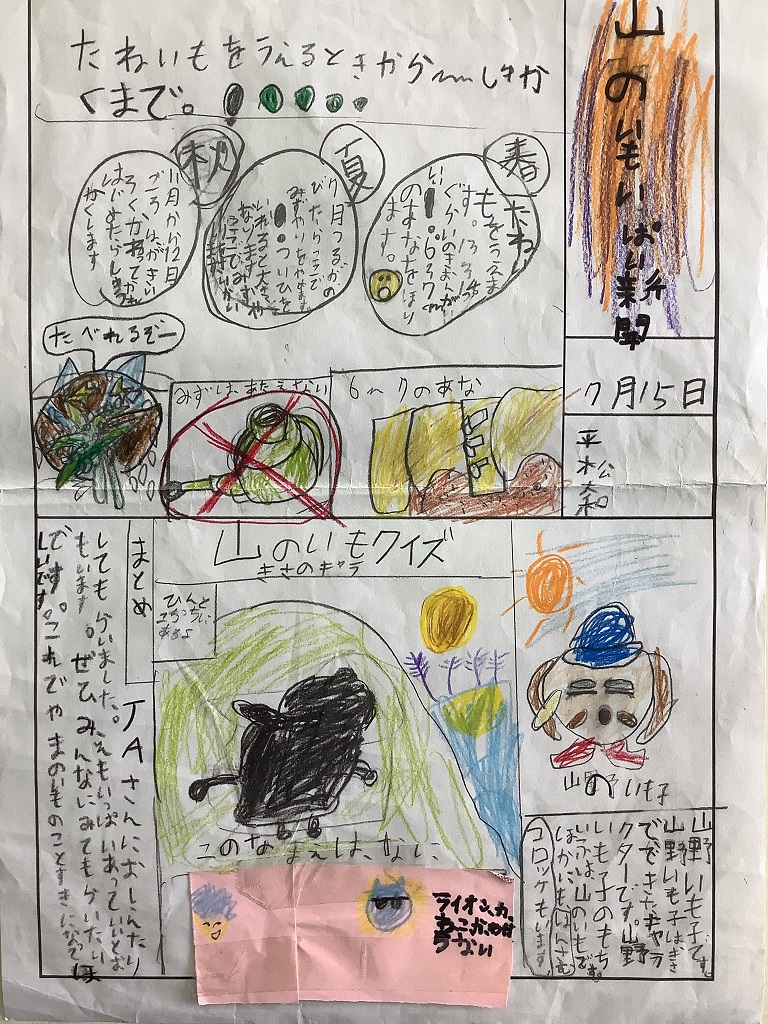 山のいもいっぱい新聞
7月15日
平松大和
たねいもをうえるときから〜しゅうか
くまで。
春
たねい
もをうえま
す。
ぐらいのきおんが
い
のあなをほり
ます。
夏
7月つるがの
びたらつちで
みずやりをやめます。
ついひを
いれると大きく
なります。
秋
11月から12月
ごろはがきい
ろくかわってかれ
はじめたらしゅう
かくします
たべれるぞー
みずは、あたえない
6〜7のあな
山のいもクイズ
きさのキャラ
ひんと
こっちに
あるよ
このなまえは、なに、
ライオンか、
ねこかわ
らない
山野いも子
山野いも子です。
山野いも子はきさ
でできたキャラ
クターです。山野
いも子のもち
ふは山のいもです。
ほかにもほんさむ
コロッケもいます。
まとめ
JAさんにおしえたり
してもらいました。
もいます。ぜひみんなにみてもらいたい
です。これでやまのいものことすきになってほ
しいです。